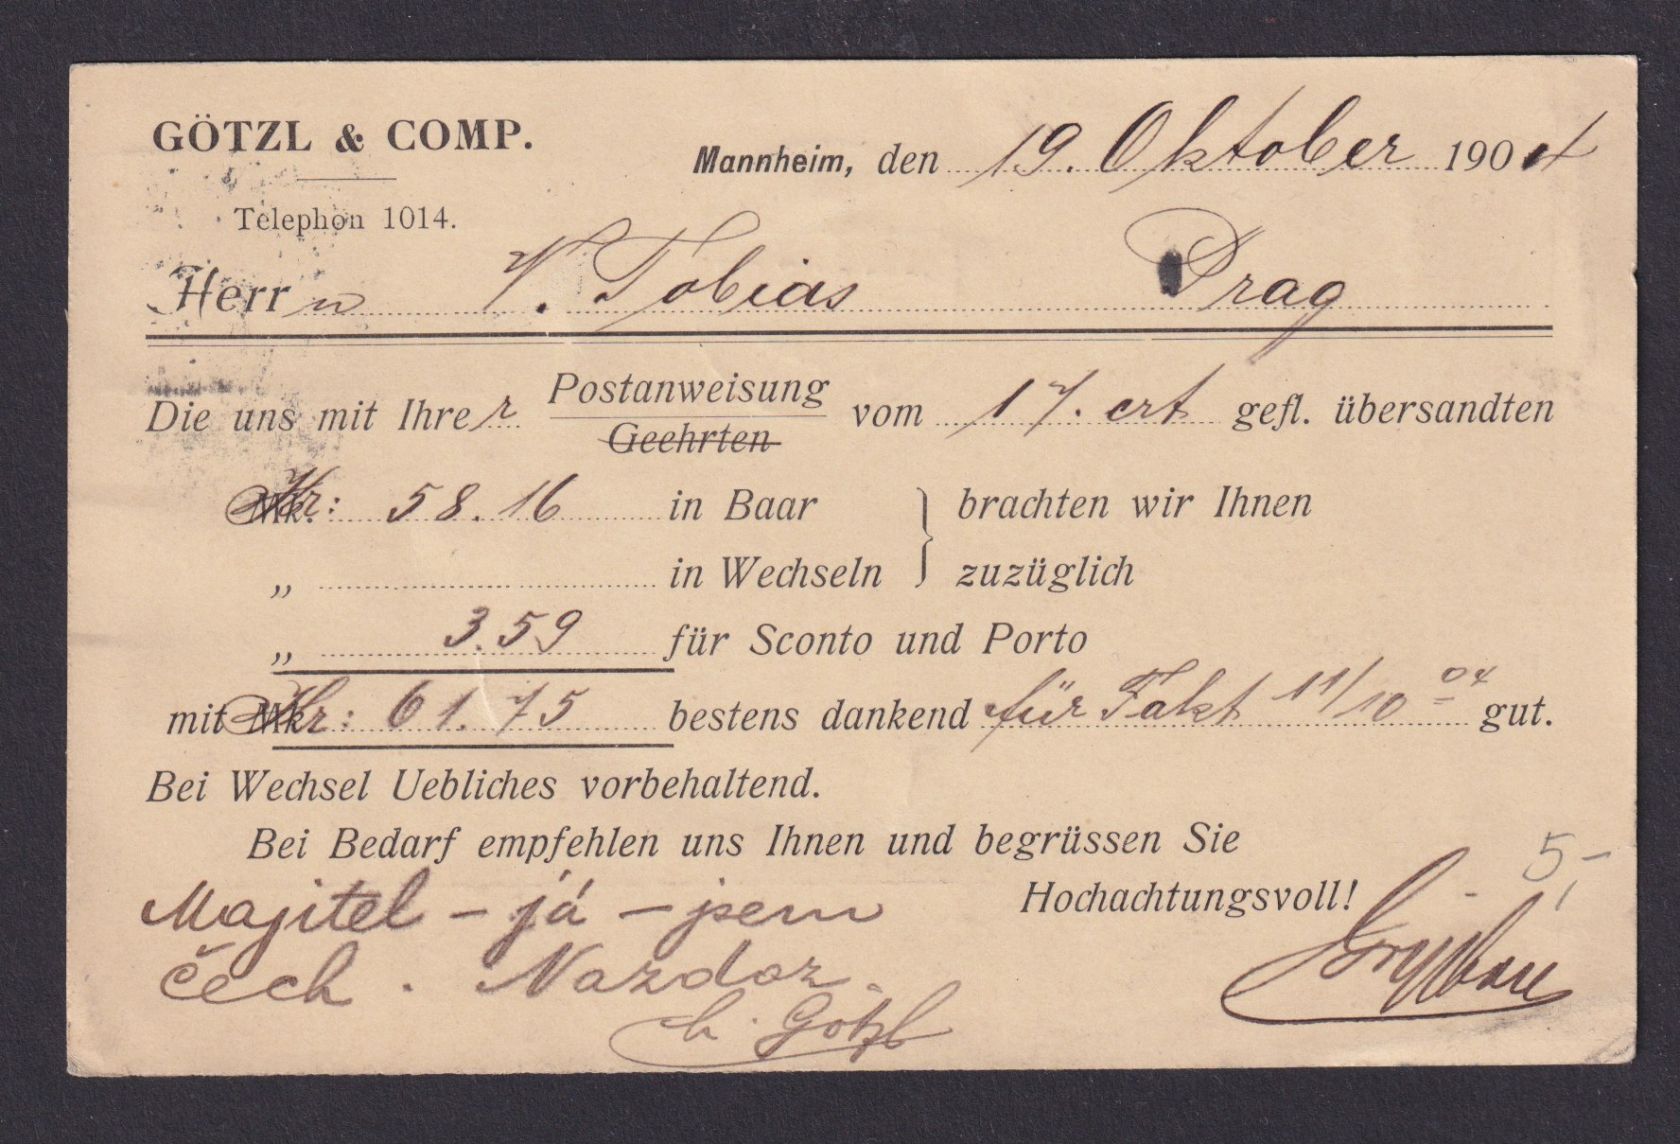 GÖTZL & COMP.
Telephon 1014.
Mannheim, den 19. Oktober 1904
Herrn V. Tobias Prag
Die uns mit Ihrer Postanweisung vom 17. crt gefl. übersandten
Geehrten
Kr: 58.16 in Baar } brachten wir Ihnen
„ in Wechseln } zuzüglich
„ 3.59 für Sconto und Porto
mit Kr: 61.75 bestens dankend für Fakt 11/10 04 gut.
Bei Wechsel Uebliches vorbehaltend.
Bei Bedarf empfehlen uns Ihnen und begrüssen Sie
Hochachtungsvoll!
5,-
Majitel – já – jsem
čech. Nazdar.
Götzl